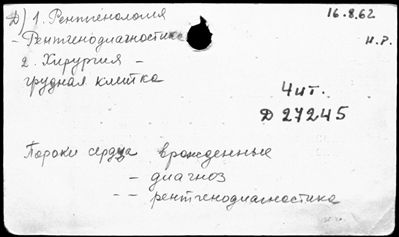 Д) 1. Рентгенология 16.8.62
- Рентгенодиагностика н.р.
2. Хирургия -
грудная клетка
Чит.
Д 27245
Пороки сердца врожденные
- диагноз
- - рентгенодиагностика